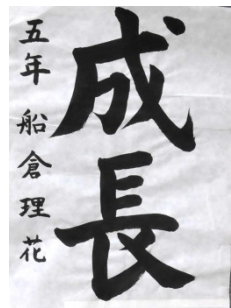 成長
五年 船倉理花